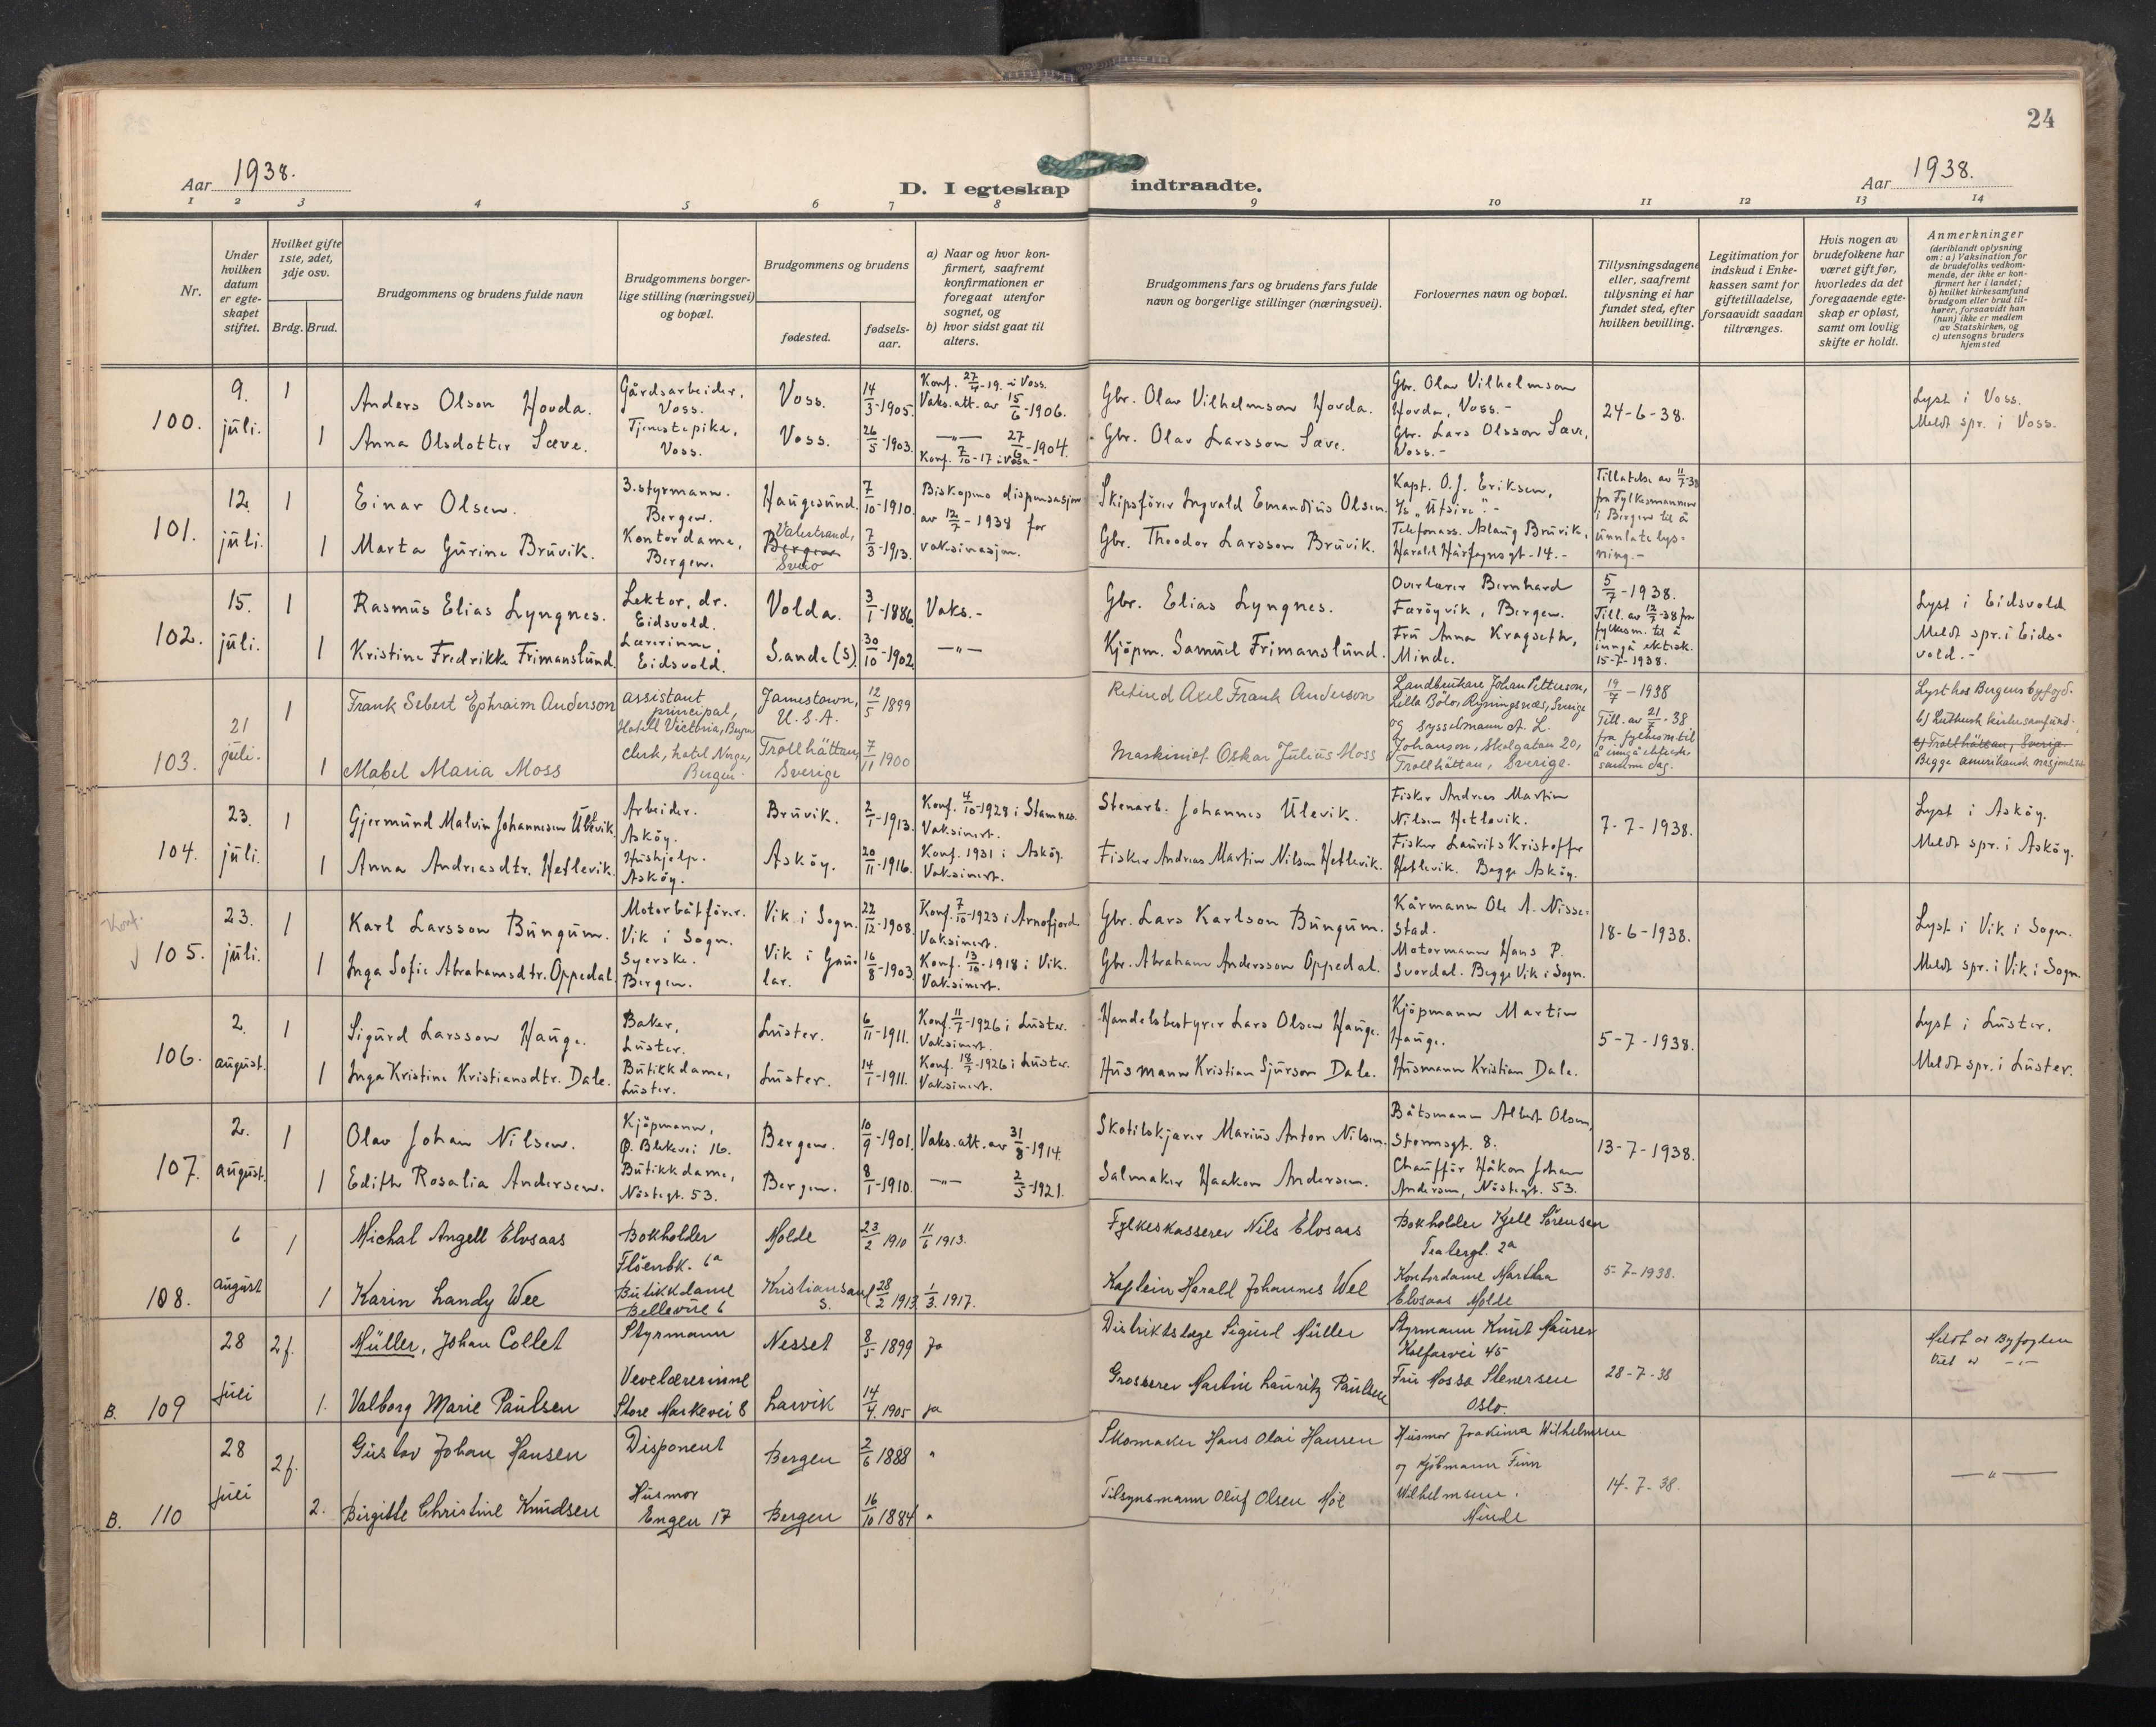 24
Aar 1938.
D. I egteskap indtraadte.
Aar 1938.
1 2 3 4 5 6 7 8 9 10 11 12 13 14
Nr.
Under hvilken datum er egteskapet stiftet.
Hvilket gifte 1ste, 2det, 3dje osv.
Brdg. Brud.
Brudgommens og brudens fulde navn
Brudgommens borgerlige stilling (næringsvei) og bopæl.
Brudgommens og brudens
fødested.
fødselsaar.
a) Naar og hvor konfirmert, saafremt konfirmationen er foregaat utenfor sognet, og
b) hvor sidst gaat til alters.
Brudgommens fars og brudens fars fulde navn og borgerlige stillinger (næringsvei).
Forlovernes navn og bopæl.
Tillysningsdagene eller, saafremt tillysning ei har fundet sted, efter hvilken bevilling.
Legitimation for indskud i Enkekassen samt for giftetilladelse, forsaavidt saadan tiltrænges.
Hvis nogen av brudefolkene har været gift før, hvorledes da det foregaaende egteskap er opløst, samt om lovlig skifte er holdt.
Anmerkninger
(deriblandt oplysning om: a) Vaksination for de brudefolks vedkommende, der ikke er konfirmert her i landet; b) hvilket kirkesamfund brudgom eller brud tilhører, forsaavidt han (hun) ikke er medlem av Statskirken, og c) utensogns bruders hjemsted
100. 9. juli. 1
Anders Olson Hovda. Gårdsarbeider, Voss. Voss. 14/3-1905. Konf. 27/4-19. i Voss. Vaks.att. av 15/6-1906. Gbr. Olav Vilhelmson Hovda. Gbr. Olav Vilhelmson Hovda, Voss.- 24-6-38. Lyst i Voss.
1 Anna Olsdotter Sæve. Tjenestepike, Voss. Voss. 26/5-1903. -"- 27/6-1904. Konf. 7/10-17 i Voss- Gbr. Olav Larsson Sæve. Gbr. Lars Olsson Sæve, Voss.- Meldt spr. i Voss.
101. 12. juli. 1
Einar Olsen. 3.styrmann. Bergen. Haugesund. 7/10-1910. Biskopens dispensasjon av 12/7-1938 for vaksinasjon. Skipsfører Ingvald Emandius Olsen. Kapt. O.J. Eriksen, "Utsire".- Tillatelse av 11/7-38 fra Fylkesmannen i Bergen til å unnlate lysning.-
1 Marta Gurine Bruvik. Kontordame, Bergen. Valestrand, Bergen Sveio 7/3-1913. Gbr. Theodor Larsson Bruvik. Telefonass. Aslaug Bruvik, Harald Hårfagresgt-14.-
102. 15. juli. 1
Rasmus Elias Lyngnes. Lektor, dr. Eidsvold. Volda. 3/1-1886. Vaks.- Gbr. Elias Lyngnes. Overlærer Bernhard Færøyvik, Bergen. 5/7-1938. Till. av 12/7-38 fra fylkesm. til å inngå ektesk. 15-7-1938. Lyst i Eidsvold
1 Kristine Fredrikke Frimanslund. Lærerinne, Eidsvold. Sande (S). 30/10-1902. -"- Kjöpm. Samuel Frimanslund. Fru Anna Kragseth, Minde. Meldt spr. i Eidsvold.-
103. 21 juli. 1
Frank Sebert Ephraim Anderson assistant principal, Hotell Victoria, Bergen Jamestown, U.S.A. 12/5 1899 Retired Axel Frank Anderson Landbrukare Johan Petterson, Lilla Bölo, Ryningsnäs, Sverige 19/7-1938 Lyst hos Bergens byfogd.
og Sysselmann A. L. Johanson, Skolgatan 20, Trollhättan, Sverige. Till. av 21/7-38 fra fylkesm til å inngå ektesk. samme dag. b) Luthersk kirkesamfund.
1 Mabel Maria Moss clerk, hotel Norge, Bergen. Trollhättan, Sverige 7/11 1900 Maskinist Oskar Julius Moss c) Trollhättan, Sverige. Begge amerikansk nasjonalitet
104. 23. juli. 1
Gjermund Malvin Johannesen Ulevik. Arbeider. Asköy. Bruvik. 2/1-1913. Konf. 4/10-1928 i Stamnes. Vaksinert. Stenarb. Johannes Ulevik. Fisker Andreas Martin Nilsen Hetlevik. 7-7-1938. Lyst i Asköy.
1 Anna Andreasdtr. Hetlevik. Hushjelp. Asköy. Asköy. 20/11-1916. Konf. 1931 i Asköy. Vaksinert. Fisker Andreas Martin Nilsen Hetlevik. Fisker Laurits Kristoffer Hetlevik. Begge Asköy. Meldt spr. i Asköy.
Konf.
105. 23. juli. 1
Karl Larsson Bungum. Motorbåtförer. Vik i Sogn. Vik i Sogn. 22/12-1908. Konf. 7/10-1923 i Arnafjord. Vaksinert. Gbr. Lars Karlson Bungum. Kårmann Ole A. Nissestad. 18-6-1938. Lyst i Vik i Sogn.
1 Inga Sofie Abrahamsdtr. Oppedal. Syerske. Bergen. Vik i Gaular. 16/8-1903. Konf. 13/10-1918 i Vik. Vaksinert. Gbr. Abraham Andersson Oppedal. Motormann Hans P. Svordal. Begge Vik i Sogn. Meldt spr. i Vik i Sogn.
106. 2. august. 1
Sigurd Larsson Hauge. Baker, Luster. Luster. 6/11-1911. Konf. 11/7-1926 i Luster. Vaksinert. Handelsbestyrer Lars Olsen Hauge. Kjöpmann Martin Hauge. 5-7-1938. Lyst i Luster.
1 Inga Kristine Kristiansdtr. Dale. Butikkdame, Luster. Luster. 14/1-1911. Konf. 18/7-1926 i Luster. Vaksinert. Husmann Kristian Sjurson Dale. Husmann Kristian Dale. Meldt spr. i Luster.
107. 2. august. 1
Olav Johan Nilsen. Kjöpmann, Ø. Blekevei 16. Bergen. 10/9-1901. Vaks.att. av 31/8-1914. Skotilskjærer Marius Anton Nilsen. Båtsmann Albert Olsen, Stermsgt. 8. 13-7-1938.
1 Edith Rosalia Andersen. Butikkdame, Nöstegt. 53. Bergen. 8/1-1910. -"- 2/5-1921. Salmaker Haakon Andersen. Chauffør Håkon Johan Andersen, Nöstegt. 53.
108. 6 august 1
Michal Angell Elvsaas Bokholder Flöenbk. 6a Molde 23/2 1910 11/6 1913. Fylkeskasserer Nils Elvsaas Bokholder Kjell Sörensen Teatergt. 2a
1 Karin Landy Wee Butikkdame Bellevue 6 Kristiansand S. 28/2 1913 1/3. 1917. Kaptein Harald Johannes Wee Kontordame Marthea Elvsaas Molde 5-7-1938.
B. 109 28 juli 2f.
Müller, Johan Collet Styrmann Nesset 8/5 1899 Ja Distriktslæge Sigurd Müller Styrmann Knut Hauser Kalfarvei 45 Meldt av Byfogden Viet av -"-
1. Valborg Marie Paulsen Vevelærerinne Store Markevei 8 Larvik 14/4. 1905 ja Grosserer Martin Lauritz Paulsen Fru Mossa Stenersen Oslo. 28-7-38
B. 110 28 juli 2f.
Gustav Johan Hansen Disponent Bergen 2/6 1888 " Skomaker Hans Olai Hansen Husmor Joakima Wilhelmsen og Kjöbmann Finn Wilhelmsen. Minde 14-7-38. -"-
2. Birgitte Christine Knudsen Husmor Engen 17 Bergen 16/10 1884 " Tilsynsmann Oluf Olsen Moe